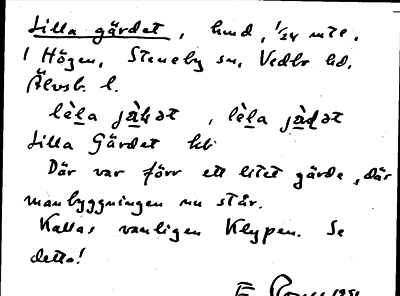 Lilla gärdet, hmd, 1/24 mtl.
i Högen, Steneby sn, Vedbo hd.
Älvsb. l.
lèla jàḷət, lèla jàḍət
Lilla Gärdet kb
Där var förr ett litet gärde, där
manbyggningen nu står.
Kallas vanligen Klypen. Se
detta!
E 1951